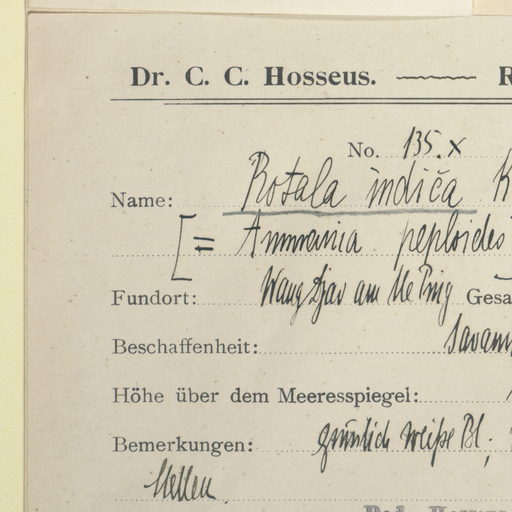 Dr. C. C. Hosseus. R
No. 135. x
Name: Rotala indica K
[= Ammania peploides
Fundort: Wang Djao am Me Ping Gesa
Beschaffenheit: Savann
Höhe über dem Meeresspiegel:
Bemerkungen: grünlich weiße Bl;
Stellen